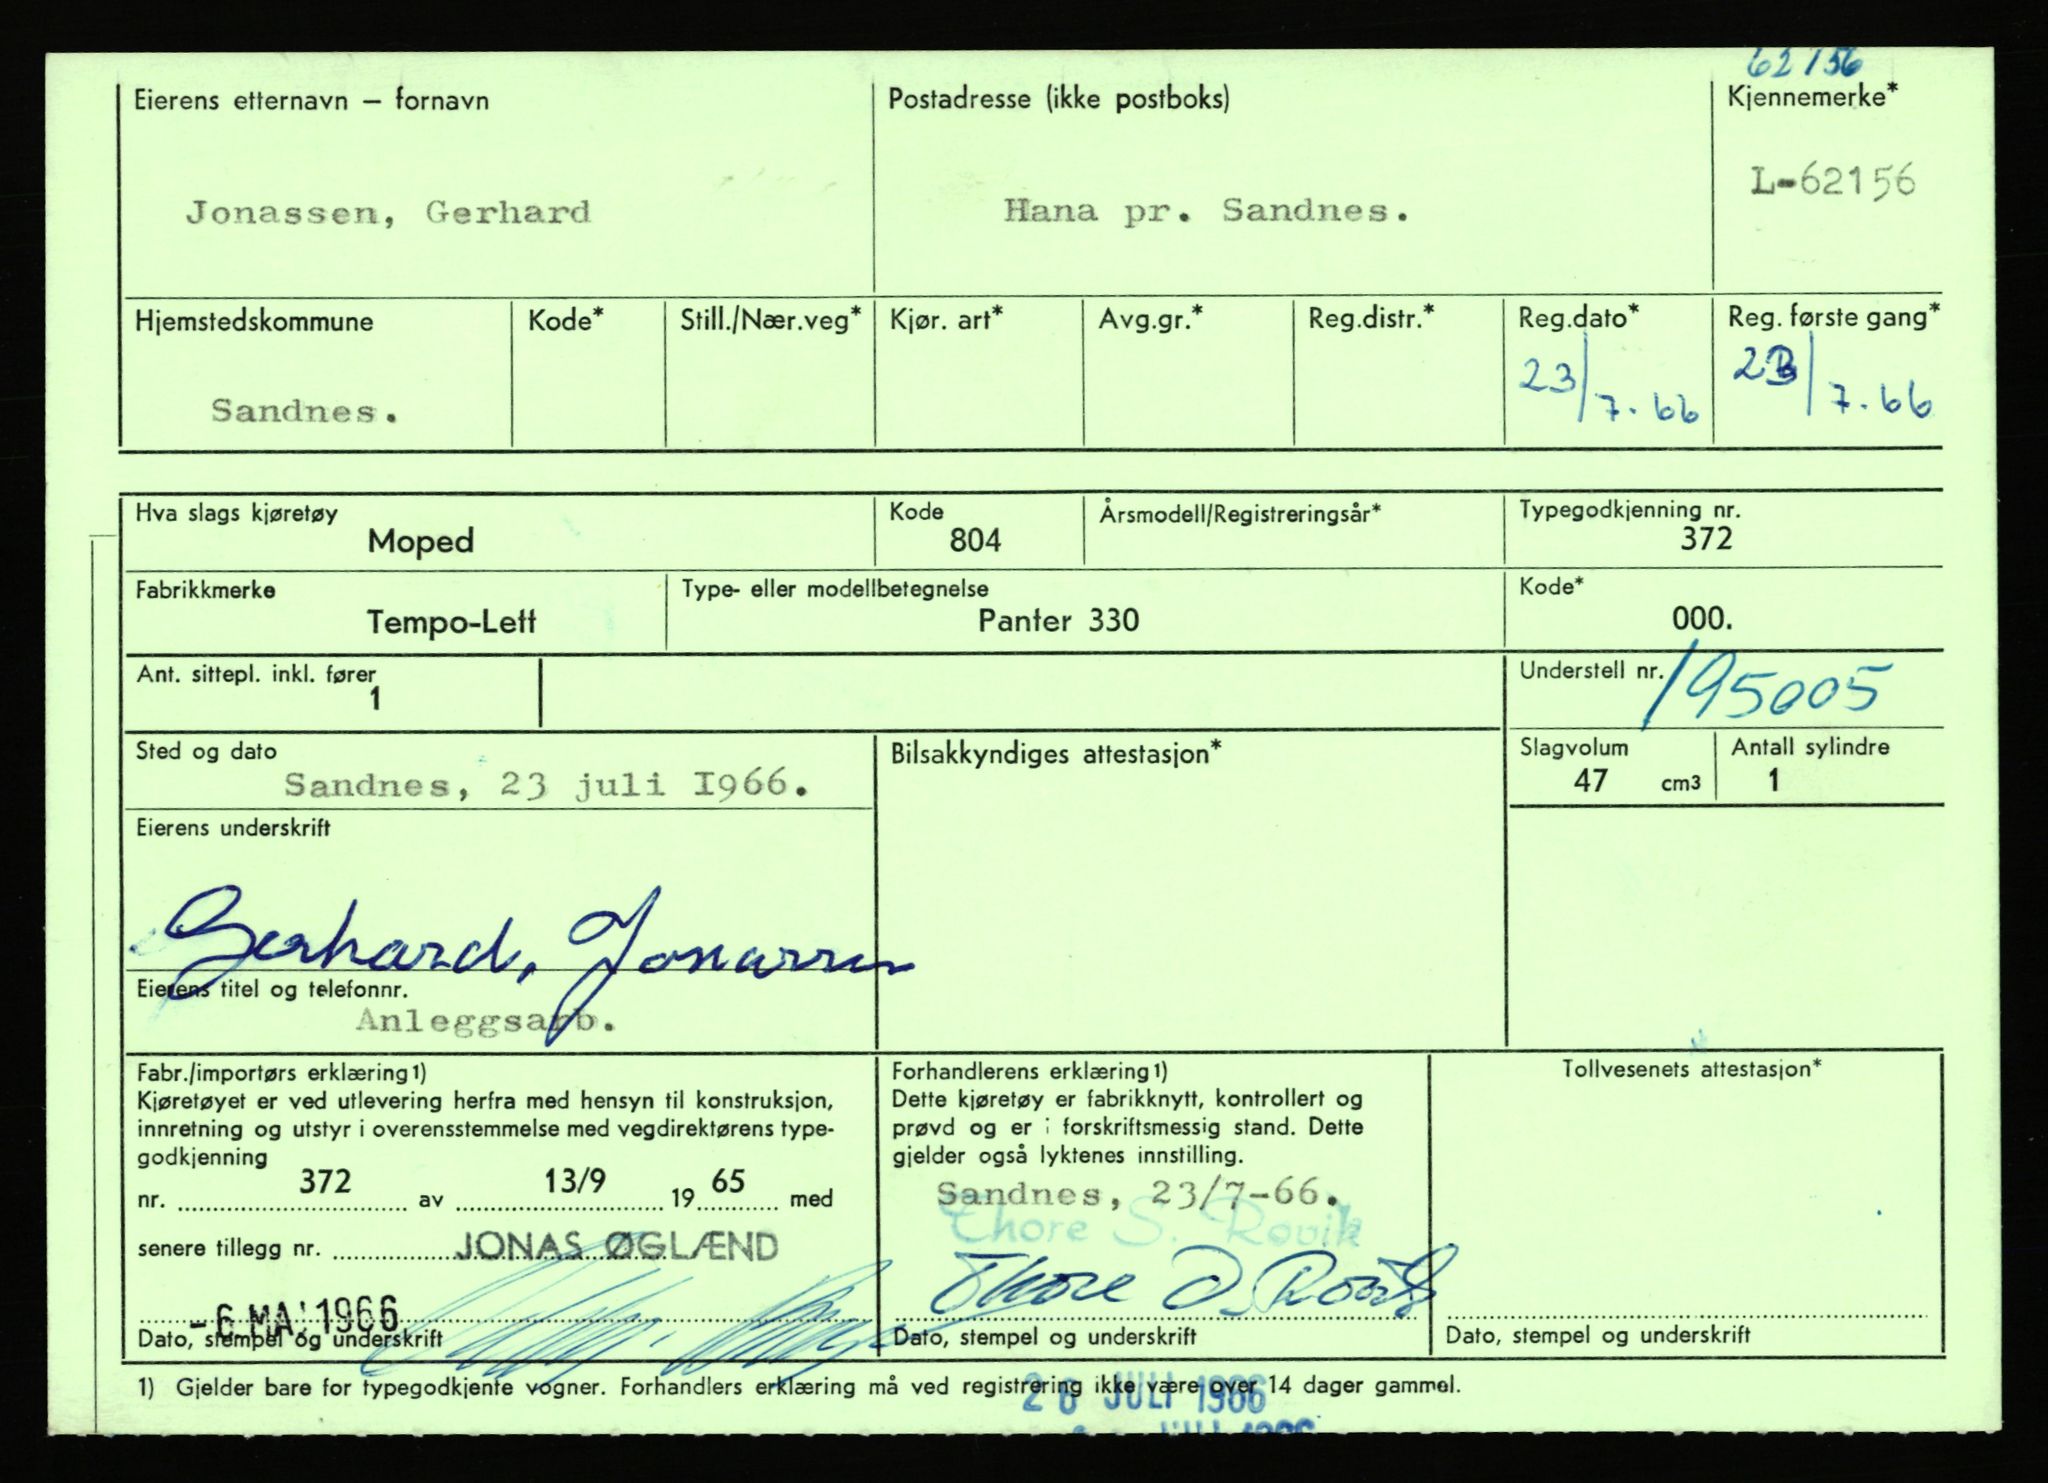 62156
Eierens etternavn – fornavn
Postadresse (ikke postboks)
Kjennemerke*
Jonassen, Gerhard
Hana pr. Sandnes.
L-62156
Hjemstedskommune
Kode*
Still./Nær.veg*
Kjør. art*
Avg.gr.*
Reg.distr.*
Reg.dato*
Reg. første gang*
Sandnes.
23/7.66
23/7.66
Hva slags kjøretøy
Moped
Kode
804
Årsmodell/Registreringsår*
Typegodkjenning nr.
372
Fabrikkmerke
Tempo-Lett
Type- eller modellbetegnelse
Panter 330
Kode*
000.
Ant. sittepl. inkl. fører
1
Understell nr.
195005
Sted og dato
Sandnes, 23 juli I966.
Bilsakkyndiges attestasjon*
Slagvolum
47 cm3
Antall sylindre
1
Eierens underskrift
Gerhard, Jonassen
Eierens titel og telefonnr.
Anleggsarb.
Fabr./importørs erklæring1)
Kjøretøyet er ved utlevering herfra med hensyn til konstruksjon,
innretning og utstyr i overensstemmelse med vegdirektørens type-
godkjenning
nr. 372 av 13/9 19 65 med
senere tillegg nr. JONAS ØGLÆND
-6 MAI 1966
Dato, stempel og underskrift
Forhandlerens erklæring1)
Dette kjøretøy er fabrikknytt, kontrollert og
prøvd og er i forskriftsmessig stand. Dette
gjelder også lyktenes innstilling.
Sandnes, 23/7-66.
Thore S. Rovik
Thore S. Rovik
Dato, stempel og underskrift
Tollvesenets attestasjon*
Dato, stempel og underskrift
1) Gjelder bare for typegodkjente vogner. Forhandlers erklæring må ved registrering ikke være over 14 dager gammel.
26 JULI 1966
JULI 1966